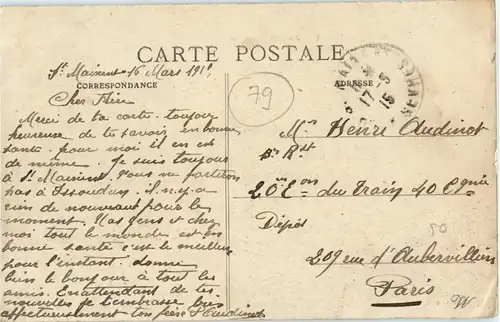 CARTE POSTALE
CORRESPONDANCE
ADRESSE
79
St Maixent 16 Mars 191
Cher Frère
Merci de ta carte. toujour
heureuse de te savoir en bonne
santé. pour moi il en est
de même. Je suis toujour
à St Maixent. Nous ne partiron
pas à Issoudun. il n.y.a
rien de nouveau pour le
moment. Mas gens et chez
moi tout le monde est en
bonne santé c'est le meilleur
pour l'instant. donne
bien le bonjour à tout les
amis. En attendant de tes
nouvelles je t'embrasse bien
affectueusement ton frère Audinot
Mr Henri Audinot
20e Eon du Train 40 Cgnie
Dépôt
209 rue d'Aubervilliers
Paris
50